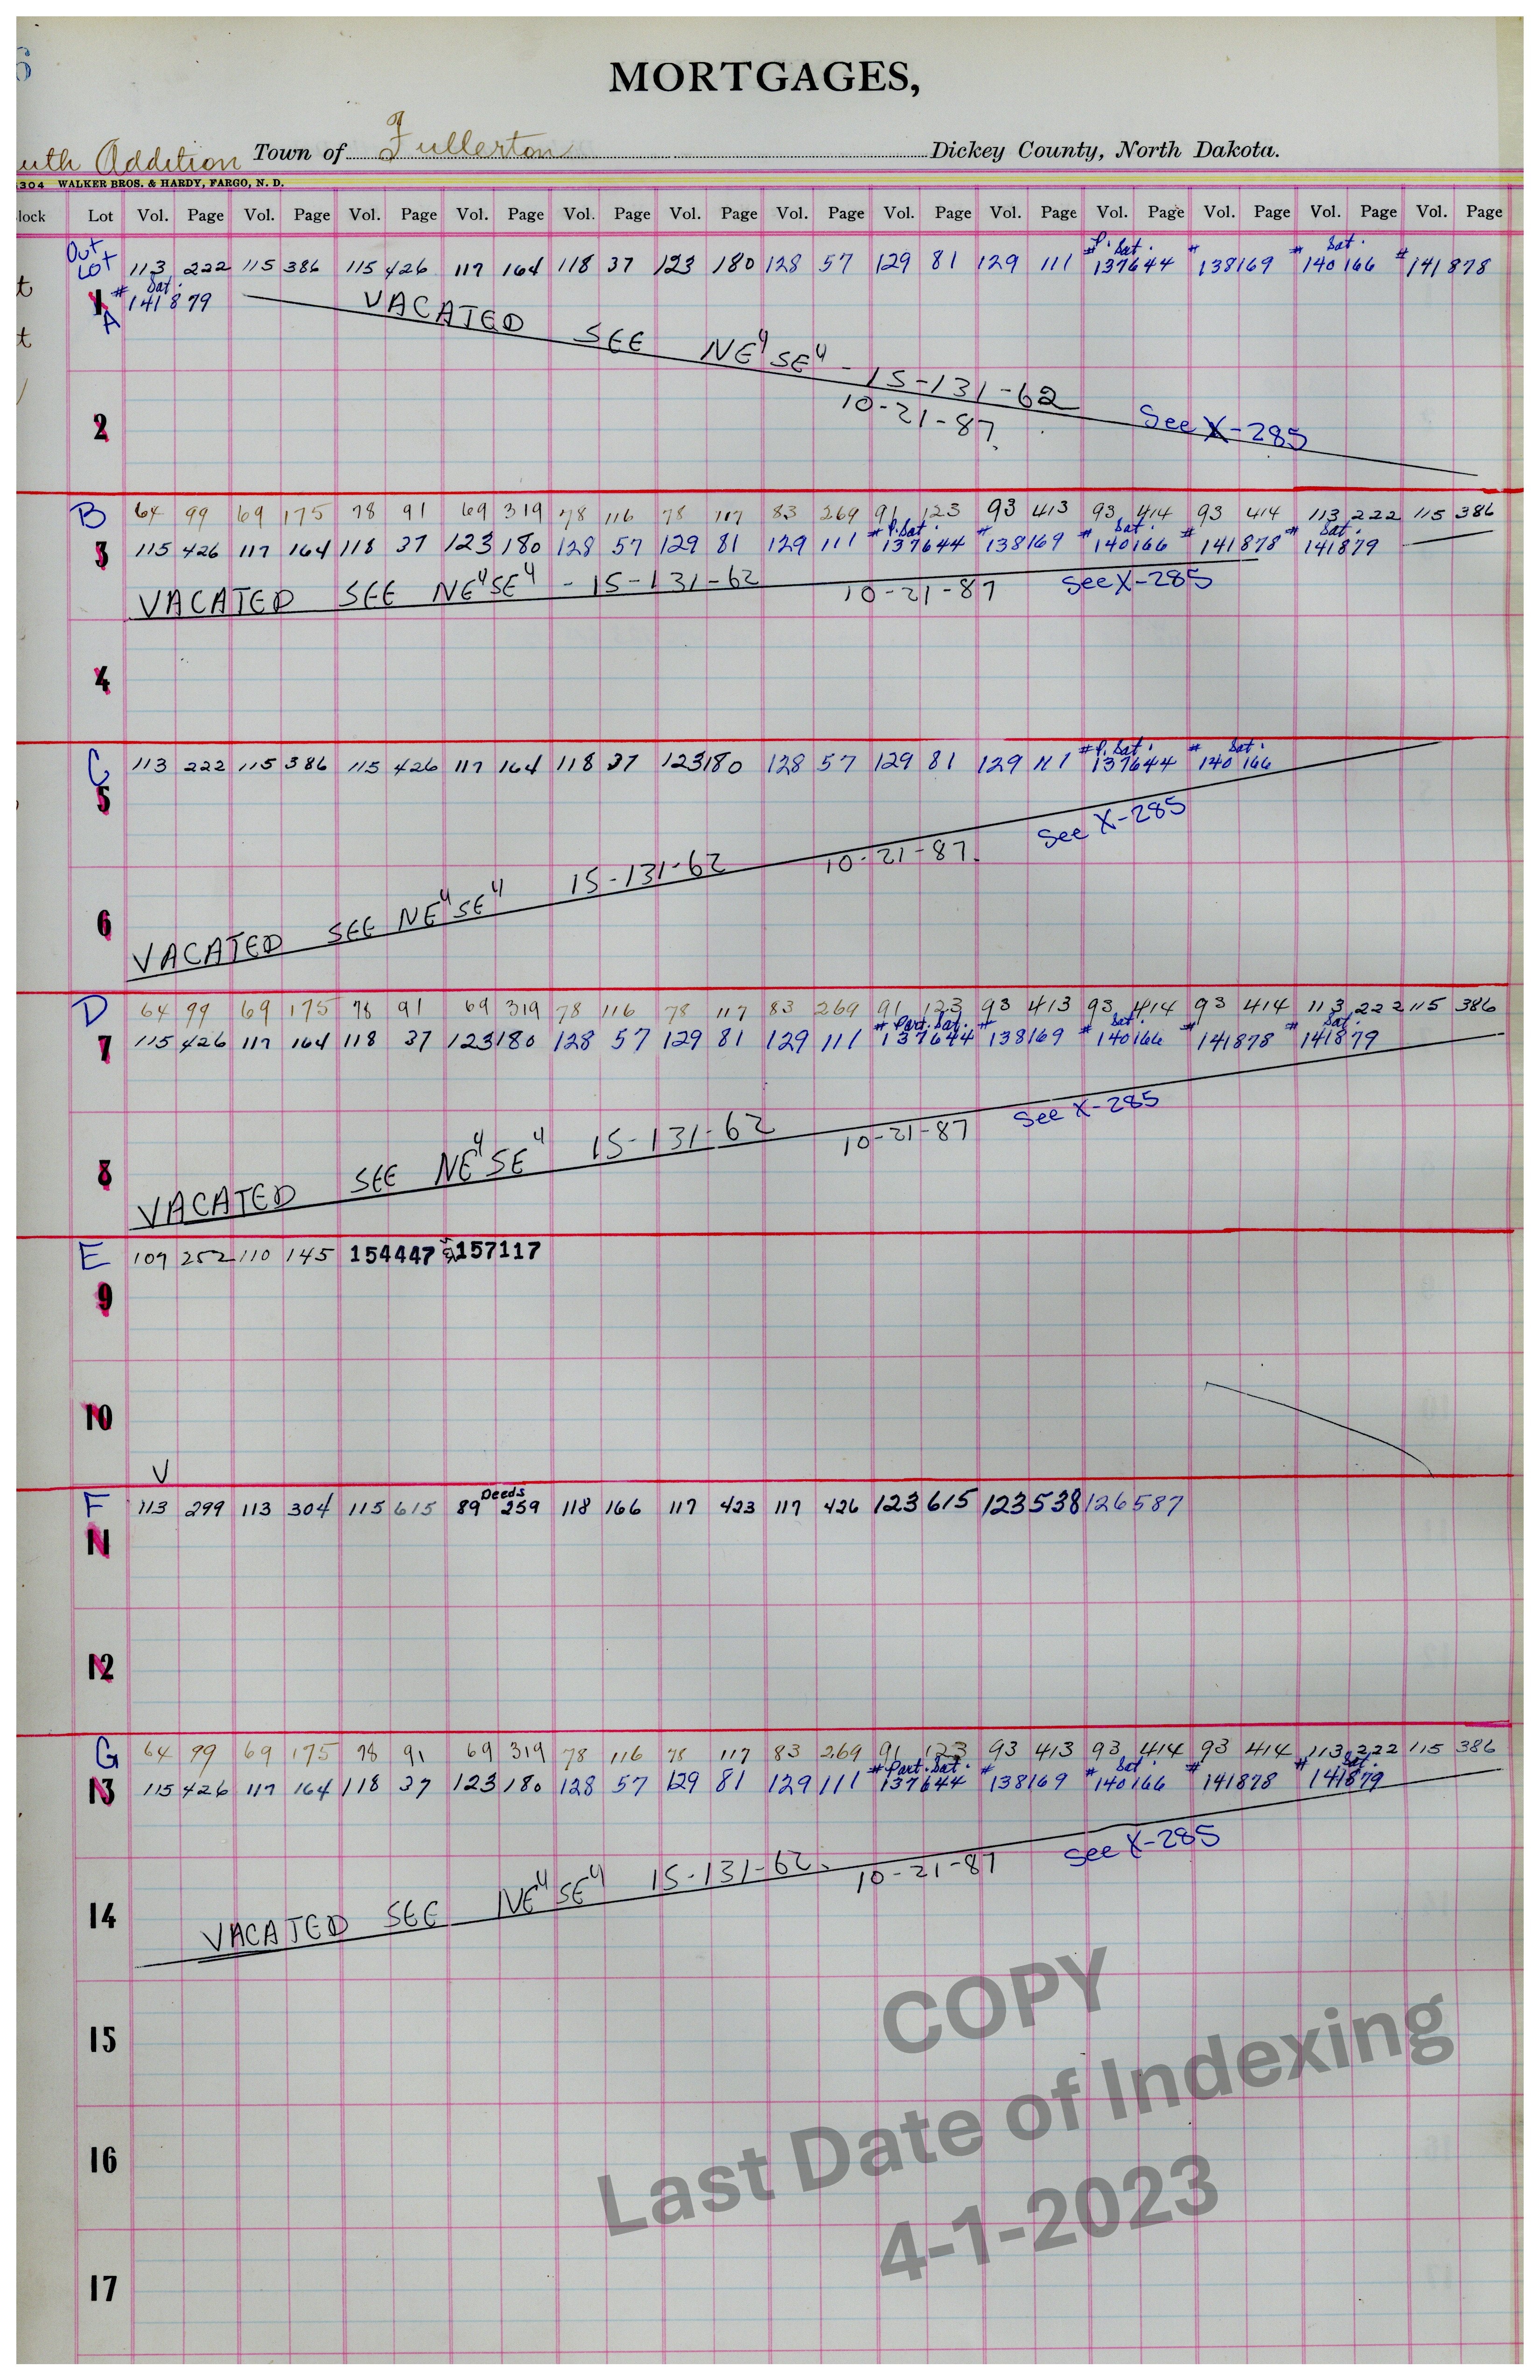 MORTGAGES,
uth Addition Town of Fullerton Dickey County, North Dakota.
304 WALKER BROS. & HARDY, FARGO, N. D.
lock Lot Vol. Page Vol. Page Vol. Page Vol. Page Vol. Page Vol. Page Vol. Page Vol. Page Vol. Page Vol. Page Vol. Page Vol. Page Vol. Page
Out P. Sat. Sat.
Lot 113 222 115 386 115 426 117 164 118 37 123 180 128 57 129 81 129 111 #137644 #138169 #140166 #141878
Sat.
1 #141879
A
VACATED SEE NE⁴SE⁴ - 15-131-62
10-21-87 See X-285
2
B 64 99 69 175 78 91 69 319 78 116 78 117 83 269 91 123 93 413 93 414 93 414 113 222 115 386
P. Sat. Sat. Sat.
3 115 426 117 164 118 37 123 180 128 57 129 81 129 111 #137644 #138169 #140166 #141878 #141879
VACATED SEE NE⁴SE⁴ - 15-131-62 10-21-87 See X-285
4
P. Sat. Sat.
C 113 222 115 386 115 426 117 164 118 37 123 180 128 57 129 81 129 111 #137644 #140166
5
VACATED SEE NE⁴SE⁴ 15-131-62 10-21-87 See X-285
6
D 64 99 69 175 78 91 69 319 78 116 78 117 83 269 91 123 93 413 93 414 93 414 113 222 115 386
Part. Sat. Sat. Sat.
7 115 426 117 164 118 37 123 180 128 57 129 81 129 111 #137644 #138169 #140166 #141878 #141879
VACATED SEE NE⁴SE⁴ 15-131-62 10-21-87 See X-285
8
E 109 252 110 145 154447 157117
9
10
V
Deeds
F 113 299 113 304 115 615 89 259 118 166 117 423 117 426 123 615 123 538 126 587
11
12
G 64 99 69 175 78 91 69 319 78 116 78 117 83 269 91 123 93 413 93 414 93 414 113 222 115 386
Part. Sat. Sat. Sat.
13 115 426 117 164 118 37 123 180 128 57 129 81 129 111 #137644 #138169 #140166 #141878 #141879
VACATED SEE NE⁴SE⁴ 15-131-62 10-21-87 See X-285
14
15
16
17
COPY
Last Date of Indexing
4-1-2023